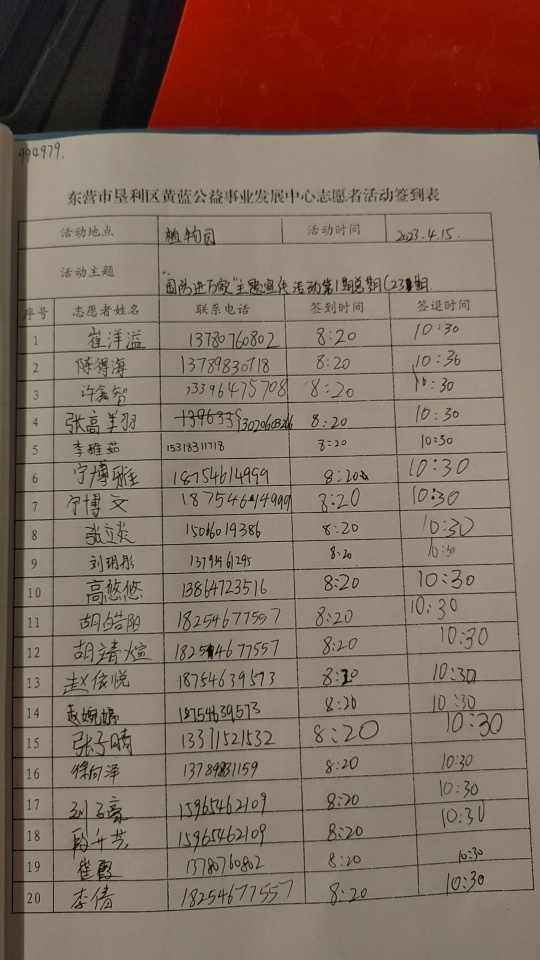 994979.
东营市垦利区黄蓝公益事业发展中心志愿者活动签到表
活动地点 植物园 活动时间 2023.4.15.
活动主题 "国防进万家"主题宣传活动第1期总期(23期
序号 志愿者姓名 联系电话 签到时间 签退时间
1 崔洋溢 13780760802 8:20 10:30
2 陈得海 13789830718 8:20 10:36
3 许鑫智 13396475708 8:20 10:30
4 张高美羽 8:20 10:30
5 李雅茹 15318311718 8:20 10:30
6 宁博雅 18754614999 8:20 10:30
7 宁博文 18754614999 8:20 10:30
8 张立炎 15066019386 8:20 10:30
9 刘玥彤 8:20 10:30
10 高悠悠 13864723516 8:20 10:30
11 胡皓阳 18254677557 8:20 10:30
12 胡靖煊 18254677557 8:20 10:30
13 赵依悦 18754639573 8:20 10:30
14 赵婉婷 18754639573 8:20 10:30
15 张子晴 13371521532 8:20 10:30
16 徐向泽 13789831159 8:20 10:30
17 刘子豪 15965462109 8:20 10:30
18 15965462109 8:20 10:30
19 崔霞 13780760802 8:20 10:30
20 李倩 18254677557 8:20 10:30